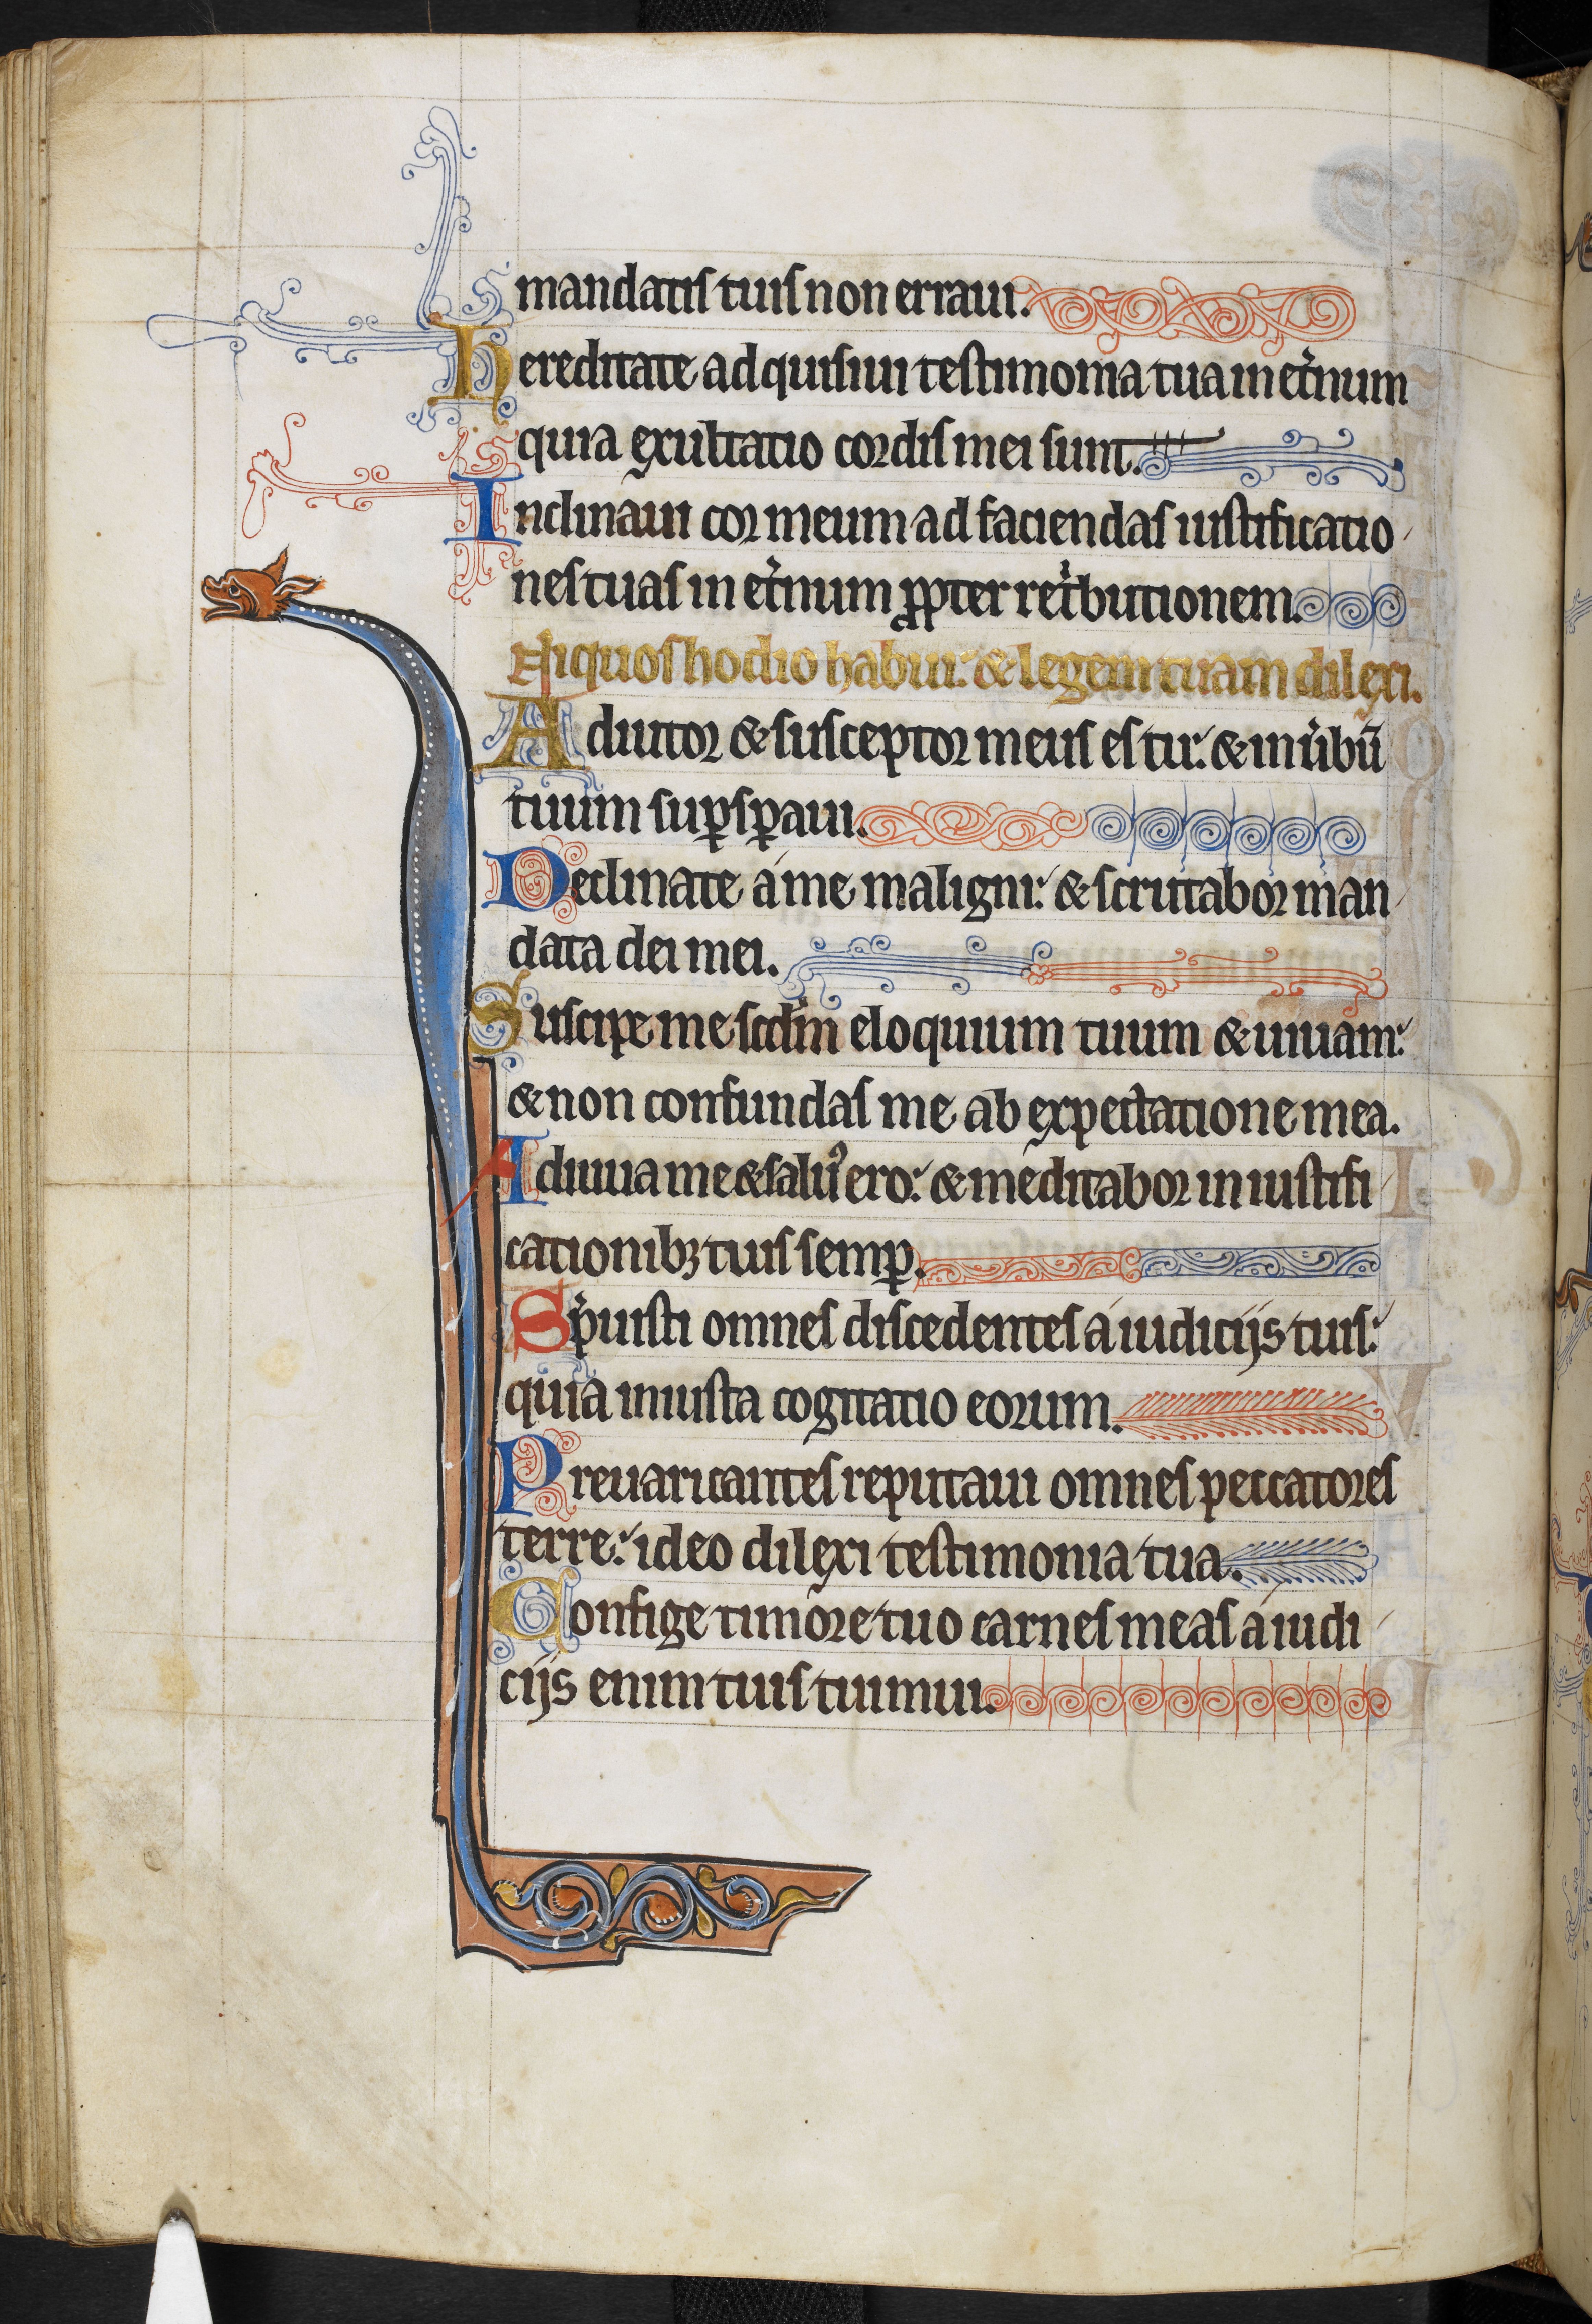 mandatis tuis non erraui.
Hereditate adquisiui testimonia tua in et̾num
quia exultatio cordis mei sunt.
Inclinaui cor meum ad faciendas iustificatio
nes tuas in et̾num ꝓpter ret̾butionem.
Niquos hodio habui: & legem tuam dilexi.
Adiutor & susceptor meus es tu: & in u̾bū
tuum suꝑsꝑaui.
Declinate a me maligni: & scrutabor man
data dei mei.
Suscipe me scdm̄ eloquium tuum & uiuam:
& non confundas me ab expectatione mea.
Adiuua me & saluꝰ ero: & meditabor in iustifi
cationibꝫ tuis semꝑ.
Sp̾uisti omnes discedentes a iudicijs tuis:
quia iniusta cogitatio eorum.
Preuaricantes reputaui omnes peccatores
terre: ideo dilexi testimonia tua.
Confige timore tuo carnes meas a iudi
cijs enim tuis tuimui.